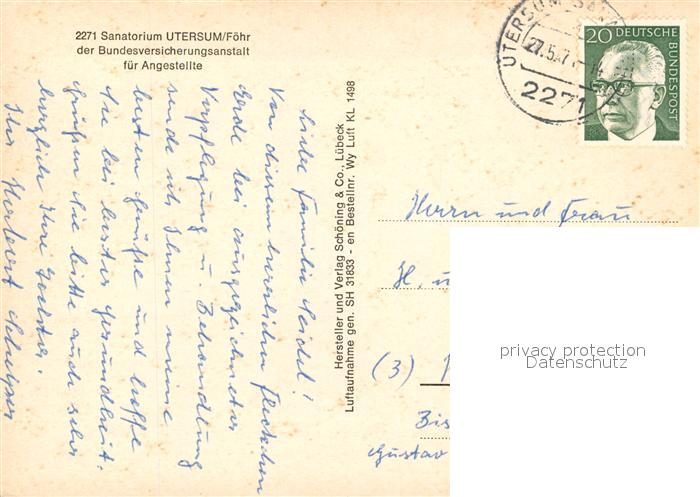 2271 Sanatorium UTERSUM/Föhr
der Bundesversicherungsanstalt
für Angestellte
Liebe Familie Seidel!
Von diesem herrlichen Fleckchen
Erde bei ausgezeichneter
Verpflegung u. Behandlung
sende ich Ihnen meine
besten Grüße und hoffe
Sie bei bester Gesundheit.
Grüßen Sie bitte auch sehr
herzlich Ihre Tochter.
Ihr Herbert
Hersteller und Verlag Schöning & Co., Lübeck
Luftaufnahme gen. SH 31833 - en Bestellnr. Wy Luft KL 1498
UTERSUM
27.5.7
2271
20 DEUTSCHE
BUNDESPOST
Herrn und Frau
H. u
(3)
Bis
Gustav
privacy protection
Datenschutz